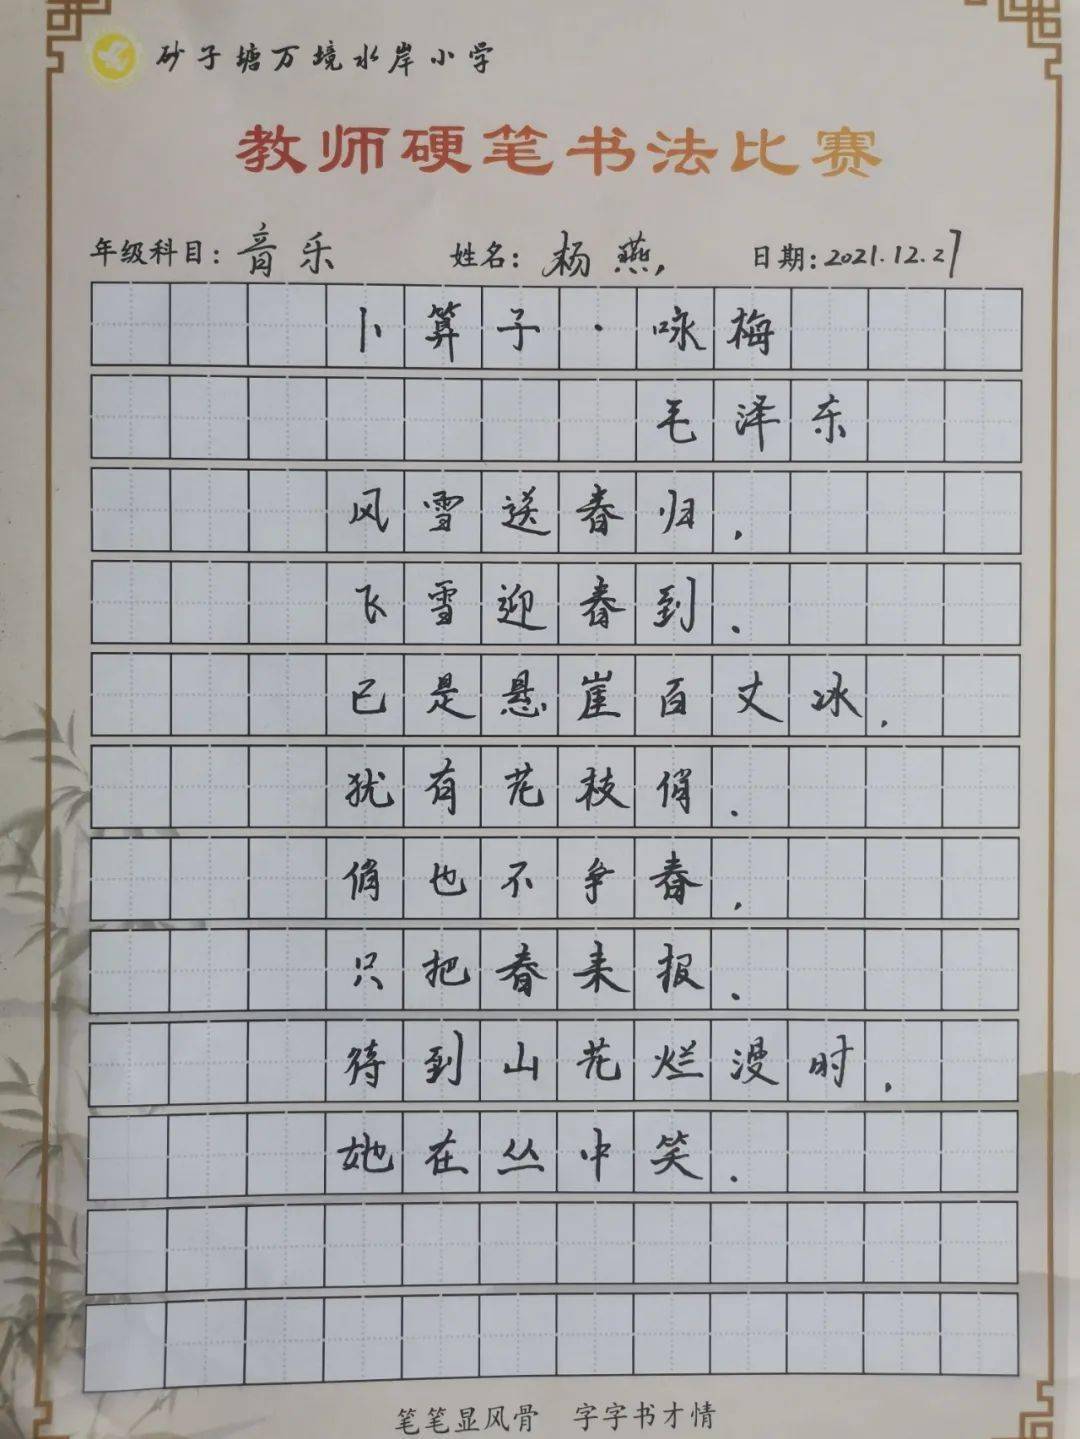 砂子塘万境水岸小学
教师硬笔书法比赛
年级科目：音乐 姓名：杨燕 日期：2021.12.27
卜算子·咏梅
毛泽东
风雪送春归，
飞雪迎春到．
已是悬崖百丈冰，
犹有花枝俏．
俏也不争春，
只把春来报．
待到山花烂漫时，
她在丛中笑．
笔笔显风骨 字字书才情